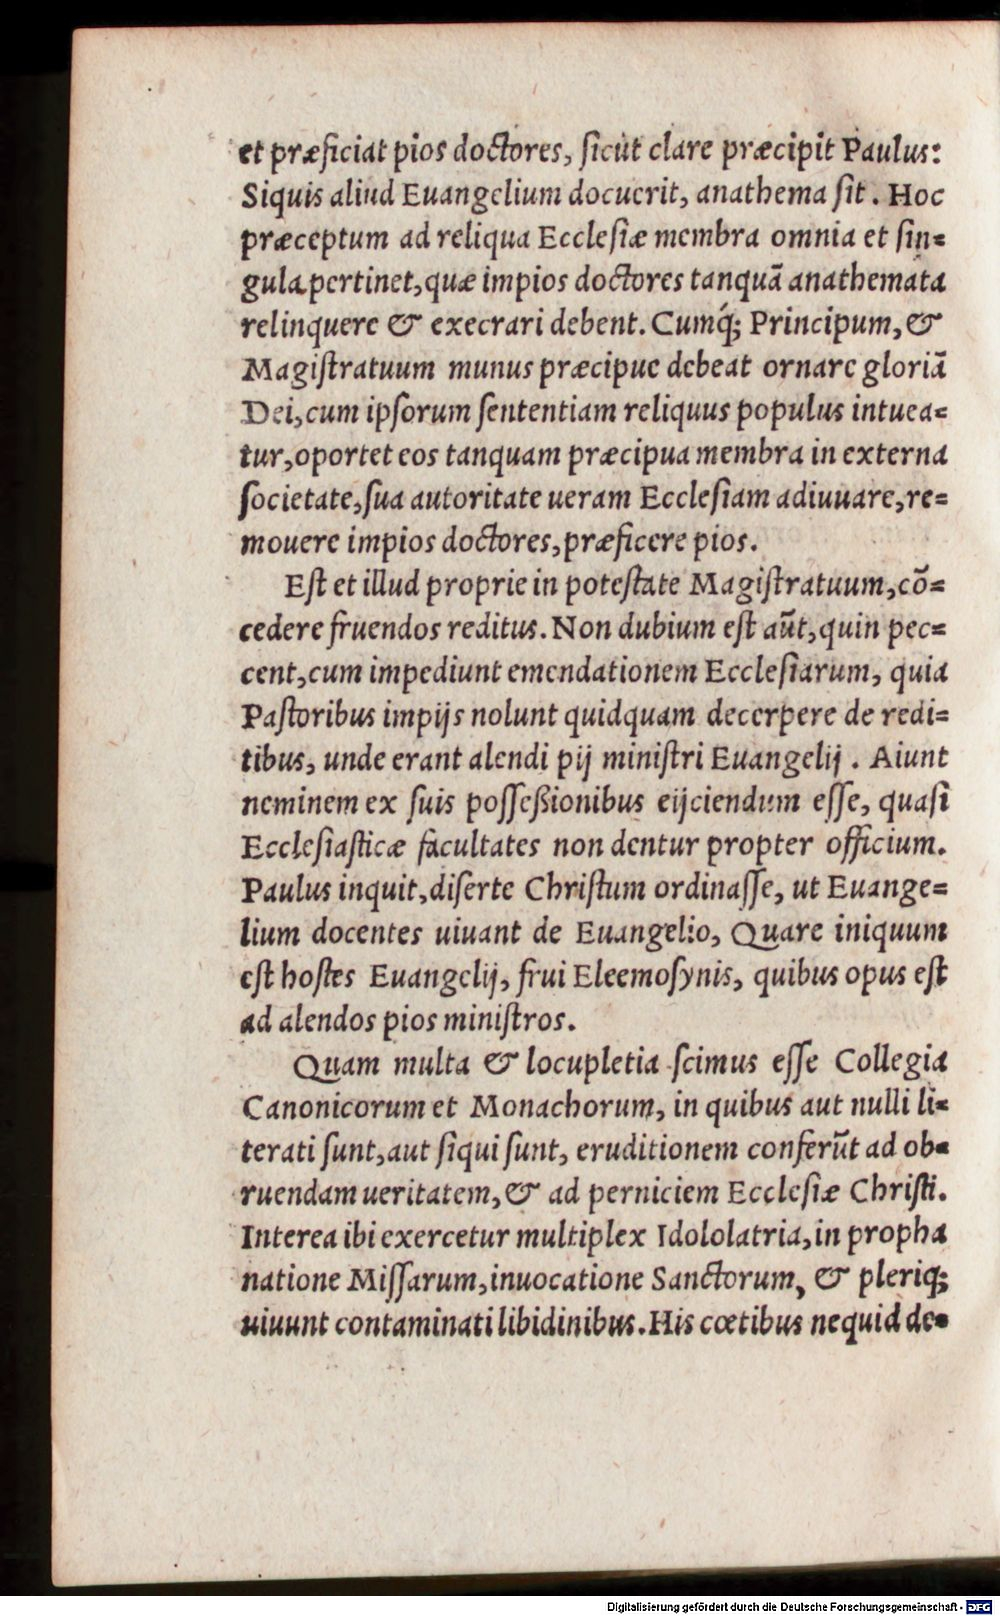 et præficiat pios doctores, sicut clare præcipit Paulus:
Siquis aliud Euangelium docuerit, anathema sit. Hoc
præceptum ad reliqua Ecclesiæ membra omnia et sin=
gula pertinet, quæ impios doctores tanquā anathemata
relinquere & execrari debent. Cumq́; Principum, &
Magistratuum munus præcipue debeat ornare gloriā
Dei, cum ipsorum sententiam reliquus populus intuea=
tur, oportet eos tanquam præcipua membra in externa
societate, sua autoritate ueram Ecclesiam adiuuare, re=
mouere impios doctores, præficere pios.
Est et illud proprie in potestate Magistratuum, cō=
cedere fruendos reditus. Non dubium est aūt, quin pec=
cent, cum impediunt emendationem Ecclesiarum, quia
Pastoribus impijs nolunt quidquam decerpere de redi=
tibus, unde erant alendi pij ministri Euangelij. Aiunt
neminem ex suis posseßionibus eijciendum esse, quasi
Ecclesiasticæ facultates non dentur propter officium.
Paulus inquit, diserte Christum ordinasse, ut Euange=
lium docentes uiuant de Euangelio, Quare iniquum
est hostes Euangelij, frui Eleemosynis, quibus opus est
ad alendos pios ministros.
Quam multa & locupletia scimus esse Collegia
Canonicorum et Monachorum, in quibus aut nulli li=
terati sunt, aut siqui sunt, eruditionem conferūt ad ob=
ruendam ueritatem, & ad perniciem Ecclesiæ Christi.
Interea ibi exercetur multiplex Idololatria, in propha
natione Missarum, inuocatione Sanctorum, & pleriq;
uiuunt contaminati libidinibus. His cœtibus nequid de=
Digitalisierung gefördert durch die Deutsche Forschungsgemeinschaft - DFG